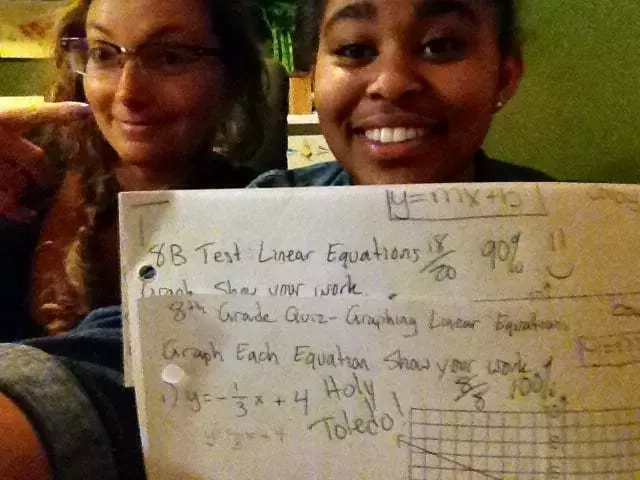 y=mx+b
8B Test Linear Equations 18/20 90%
Graph Show your work.
8th Grade Quiz- Graphing Linear Equations
Graph Each Equation Show your work.
8/8 100%
1) y=-1/3x+4 Holy
Toledo!